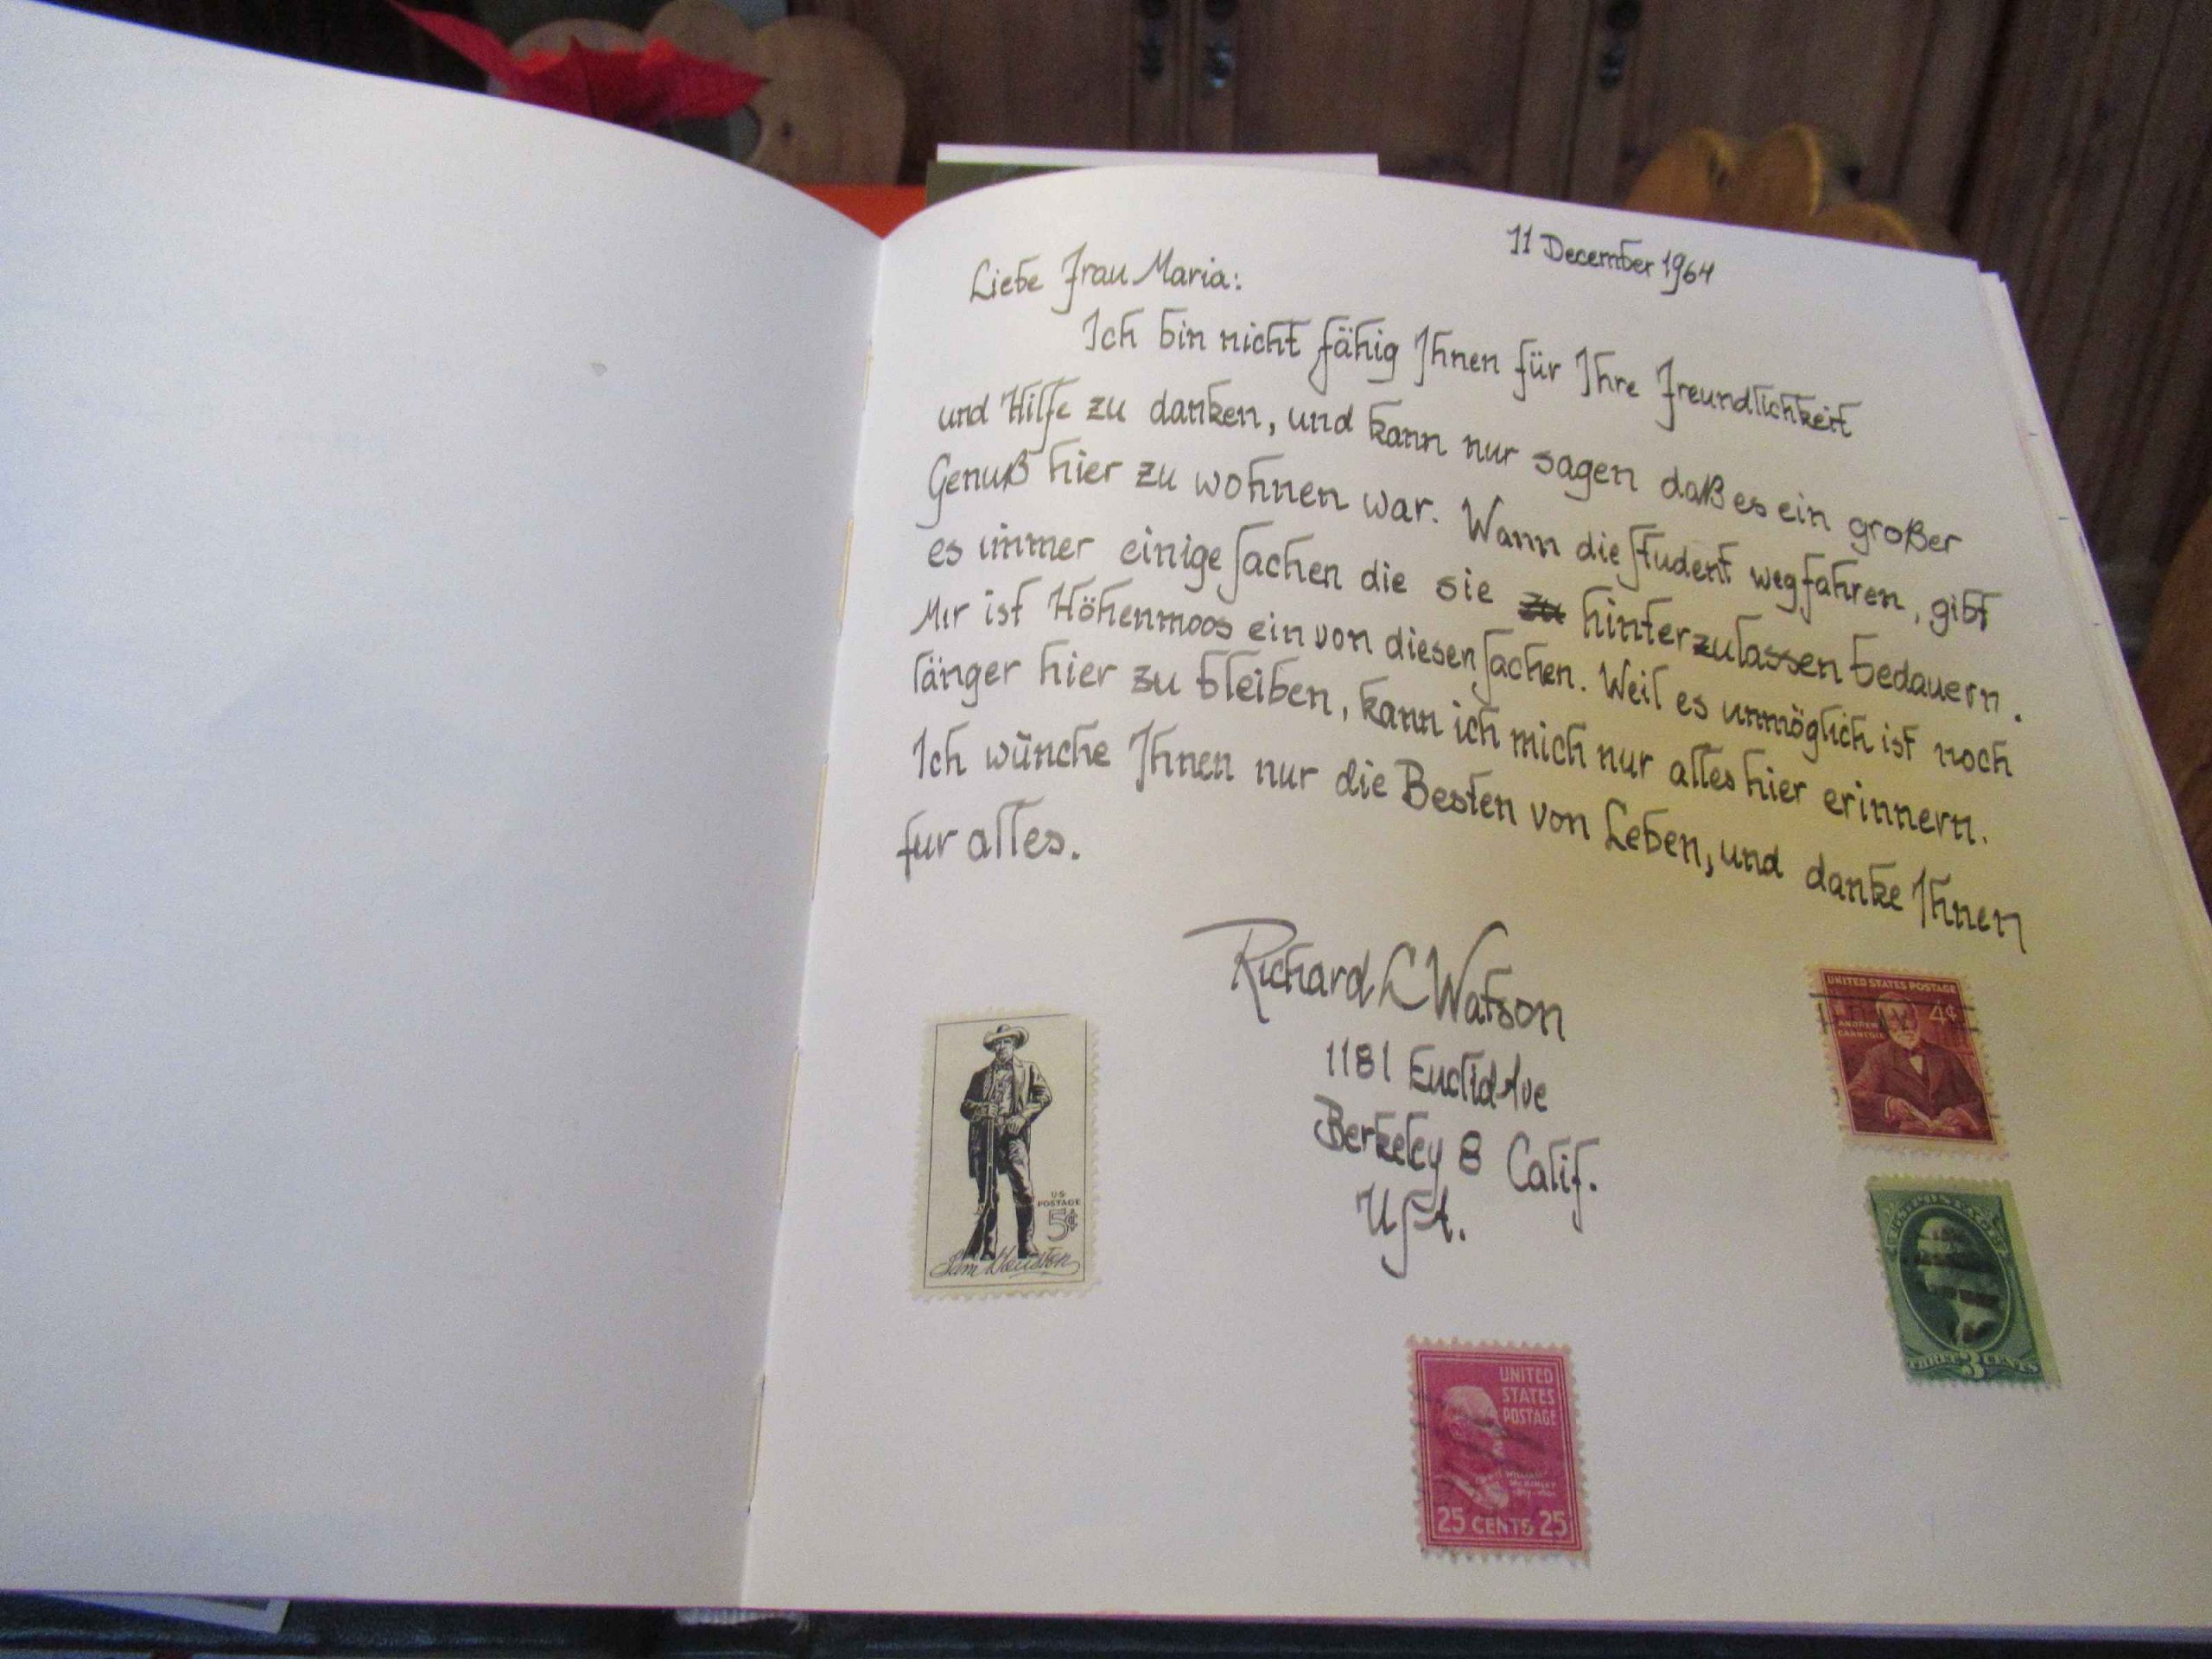 11 December 1964
Liebe Frau Maria:
Ich bin nicht fähig Ihnen für Ihre Freundlichkeit
und Hilfe zu danken, und kann nur sagen daß es ein großer
Genuß hier zu wohnen war. Wann die Student wegfahren, gibt
es immer einige Sachen die sie zu hinterzulassen bedauern.
Mir ist Höhenmoos ein von diesen Sachen. Weil es unmöglich ist noch
länger hier zu bleiben, kann ich mich nur alles hier erinnern.
Ich wünche Ihnen nur die Besten von Leben, und danke Ihnen
fur alles.
Richard C Watson
1181 Euclid Ave
Berkeley 8 Calif.
USA.
US
POSTAGE
5¢
Sam Houston
UNITED STATES POSTAGE
4¢
ANDREW
CARNEGIE
THREE 3 CENTS
UNITED
STATES
POSTAGE
WILLIAM
McKINLEY
25 CENTS 25